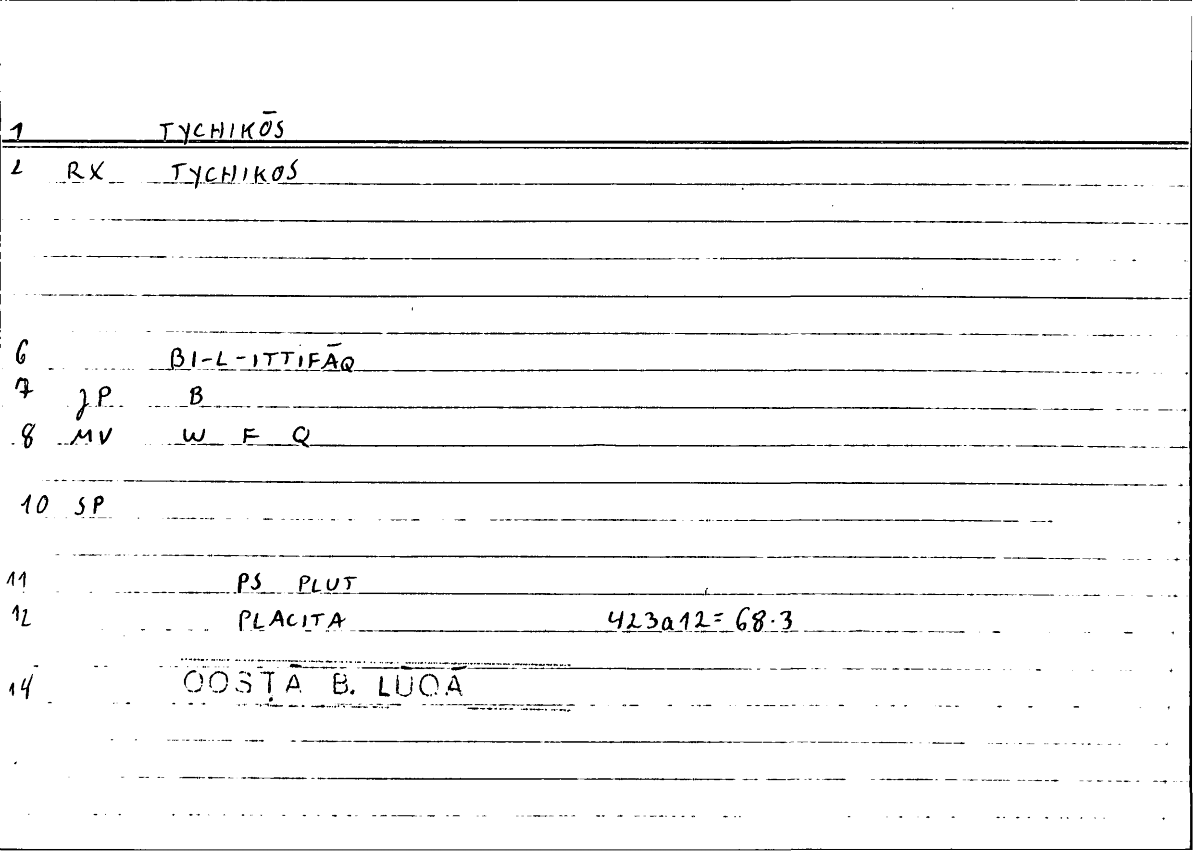 1 TYCHIKŌS
2 RX TYCHIKOS
6 BI-L-ITTIFĀQ
7 JP B
8 MV W F Q
10 SP
11 PS PLUT
12 PLACITA 423a12=68.3
14 QOSṬĀ B. LŪQĀ